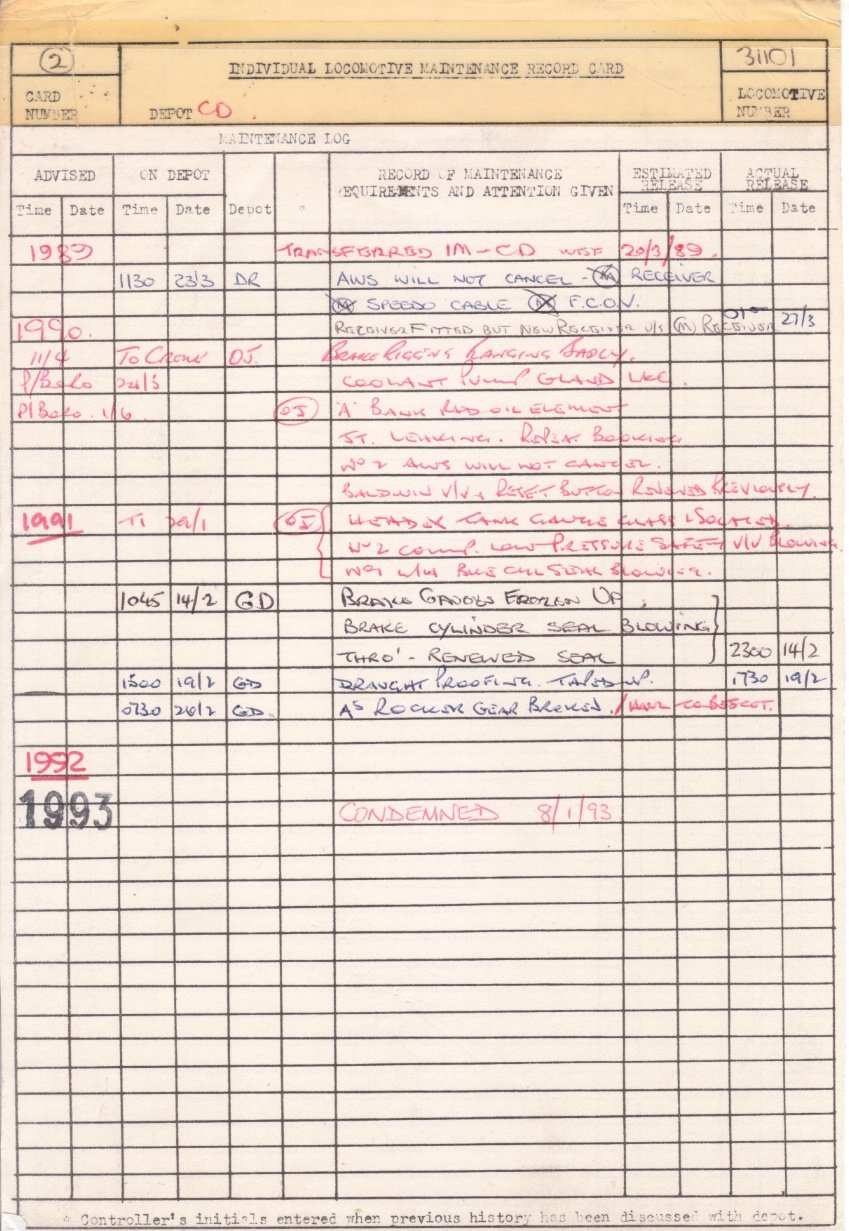 2 INDIVIDUAL LOCOMOTIVE MAINTENANCE RECORD CARD 31101
CARD NUMBER DEPOT CD. LOCOMOTIVE NUMBER
MAINTENANCE LOG
ADVISED ON DEPOT RECORD OF MAINTENANCE REQUIREMENTS AND ATTENTION GIVEN ESTIMATED RELEASE ACTUAL RELEASE
Time Date Time Date Depot * Time Date Time Date
1989 TRANSFERRED IM - CD WEF 20/3/89.
1130 23/3 DR AWS WILL NOT CANCEL - M RECEIVER
M SPEEDO CABLE M F.C.O.V.
1990. RECEIVER FITTED BUT NEW RECEIVER U/S M RECEIVER 0100 27/3
11/4 TO CREW OJ. BRAKE RIGGING BANGING BADLY.
P/BORO 24/5 COOLANT PUMP GLAND
P/BORO. 1/6 OJ 'A' BANK OIL ELEMENT
JT. LEAKING. REPEAT BOOKING
No 2 AWS WILL NOT CANCEL.
BALDWIN V/V & RESET BUTTON RENEWED PREVIOUSLY.
1991 TI 29/1 OJ HEADER TANK GAUGE GLASS ISOLATED.
No 2 COMP. LOW PRESSURE SAFETY V/V BLOWING.
No1 L/H BKE CYL SEAL BLOWING.
1045 14/2 GD BRAKE GAUGES FROZEN UP,
BRAKE CYLINDER SEAL BLOWING
THRO' - RENEWED SEAL 2300 14/2
1500 19/2 GD DRAUGHT PROOFING. TAPED UP. 1730 19/2
0730 20/2 GD. A5 ROCKER GEAR BROKEN. / HAUL TO BESCOT.
1992
1993 CONDEMNED 8/1/93
* Controller's initials entered when previous history has been discussed with depot.